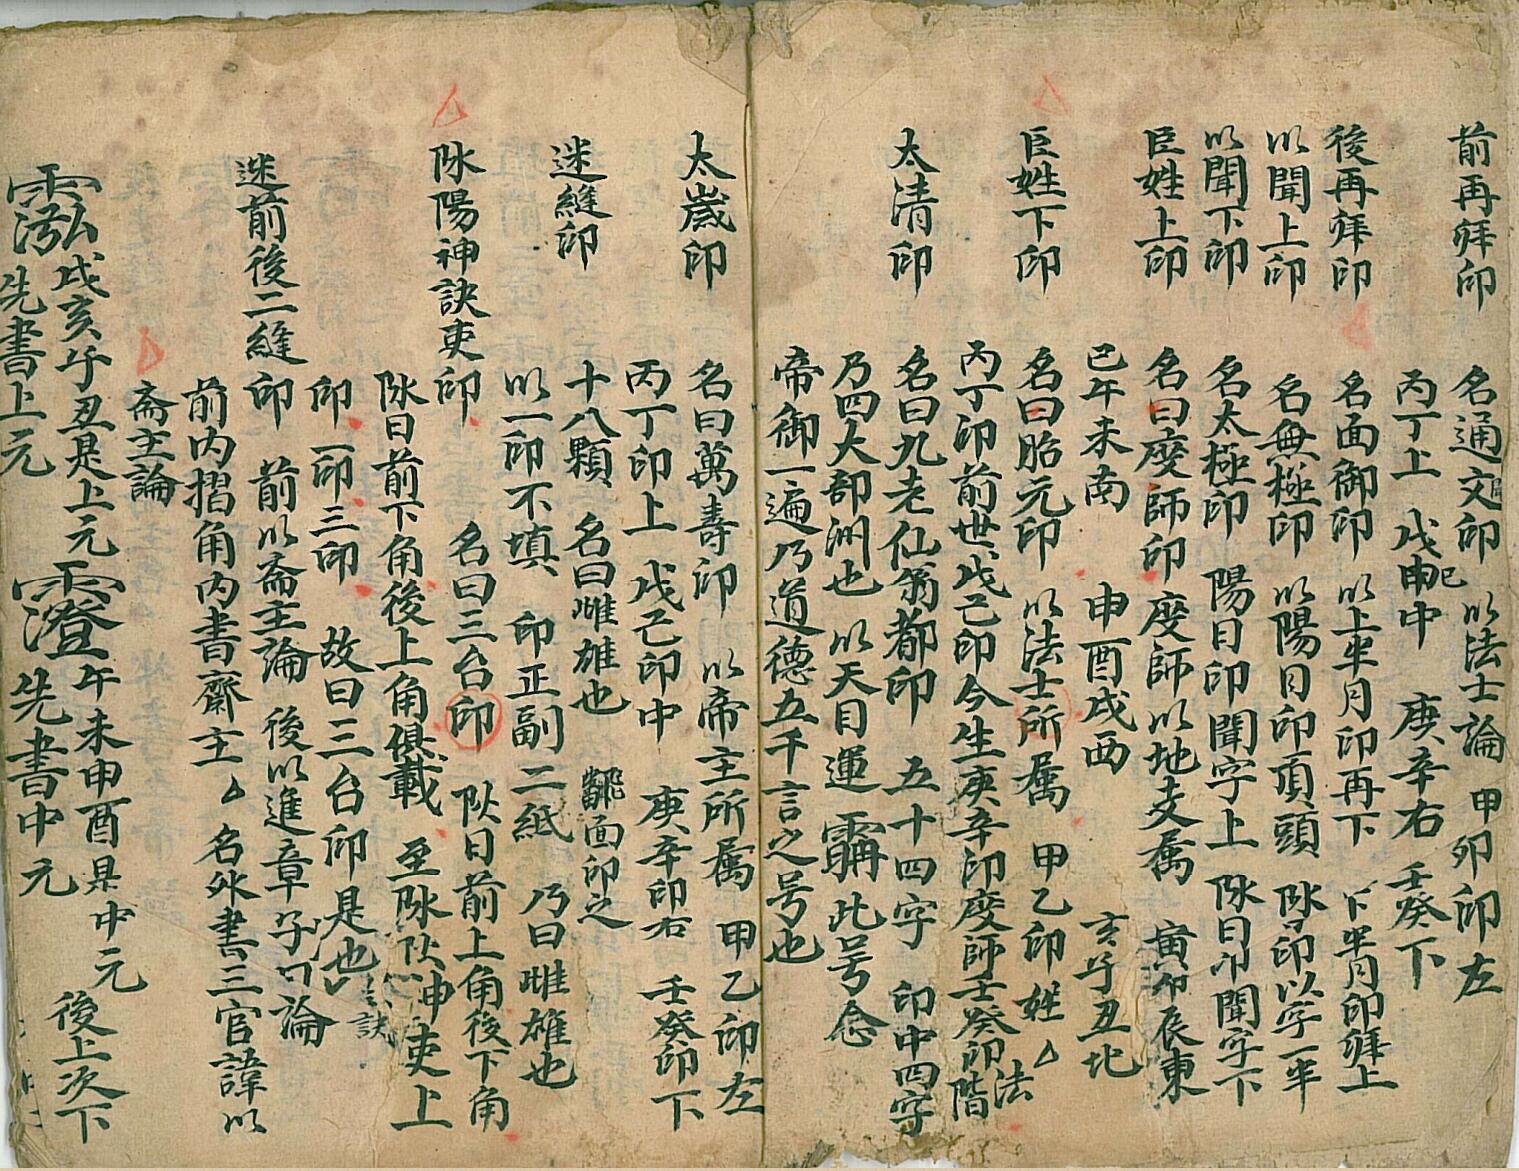 前再拜印　名通文印　以法士論　甲卯印左
丙丁上　戊申己中　庚辛右　壬癸下
後再拜印　名面御印　以上半月印再下　下半月印拜上
以聞上印　名無極印　以陽日印頂頭　印以字一半
以聞下印　名太極印　陽日印聞字上　日印聞字下
臣姓上印　名曰度師印　度師以地支属　寅卯辰東
巳午未南　申酉戌西　亥子丑北
臣姓下印　名曰胎元印　以法士所属　甲乙印姓ム法
丙丁印前世　戊己印今生　庚辛印度師　壬癸印階
太清印　名曰九老仙翁都印　五十四字　印中四字
乃四大部洲也　以天目運　此号念
帝御一遍乃道德五千言之号也
太歲印　名曰萬壽印　以帝主所属　甲乙印左
丙丁印上　戊己印中　庚辛印右　壬癸印下
迷縫印　十八顆　名曰雌雄也　面印之
以一印不填　印正副二紙　乃曰雌雄也
陽神訣吏印　名曰三台印　日前上角後下角
日前下角後上角俱載　至神吏上
印一印三印　故曰三台印是也　訣
迷前後二縫印　前以斋主論　後以進章弟子論
前内摺角内書齋主ム名　外書三官諱以
斋主論
戊亥子丑是上元　午未申酉是中元　後上次下
先書上元　先書中元